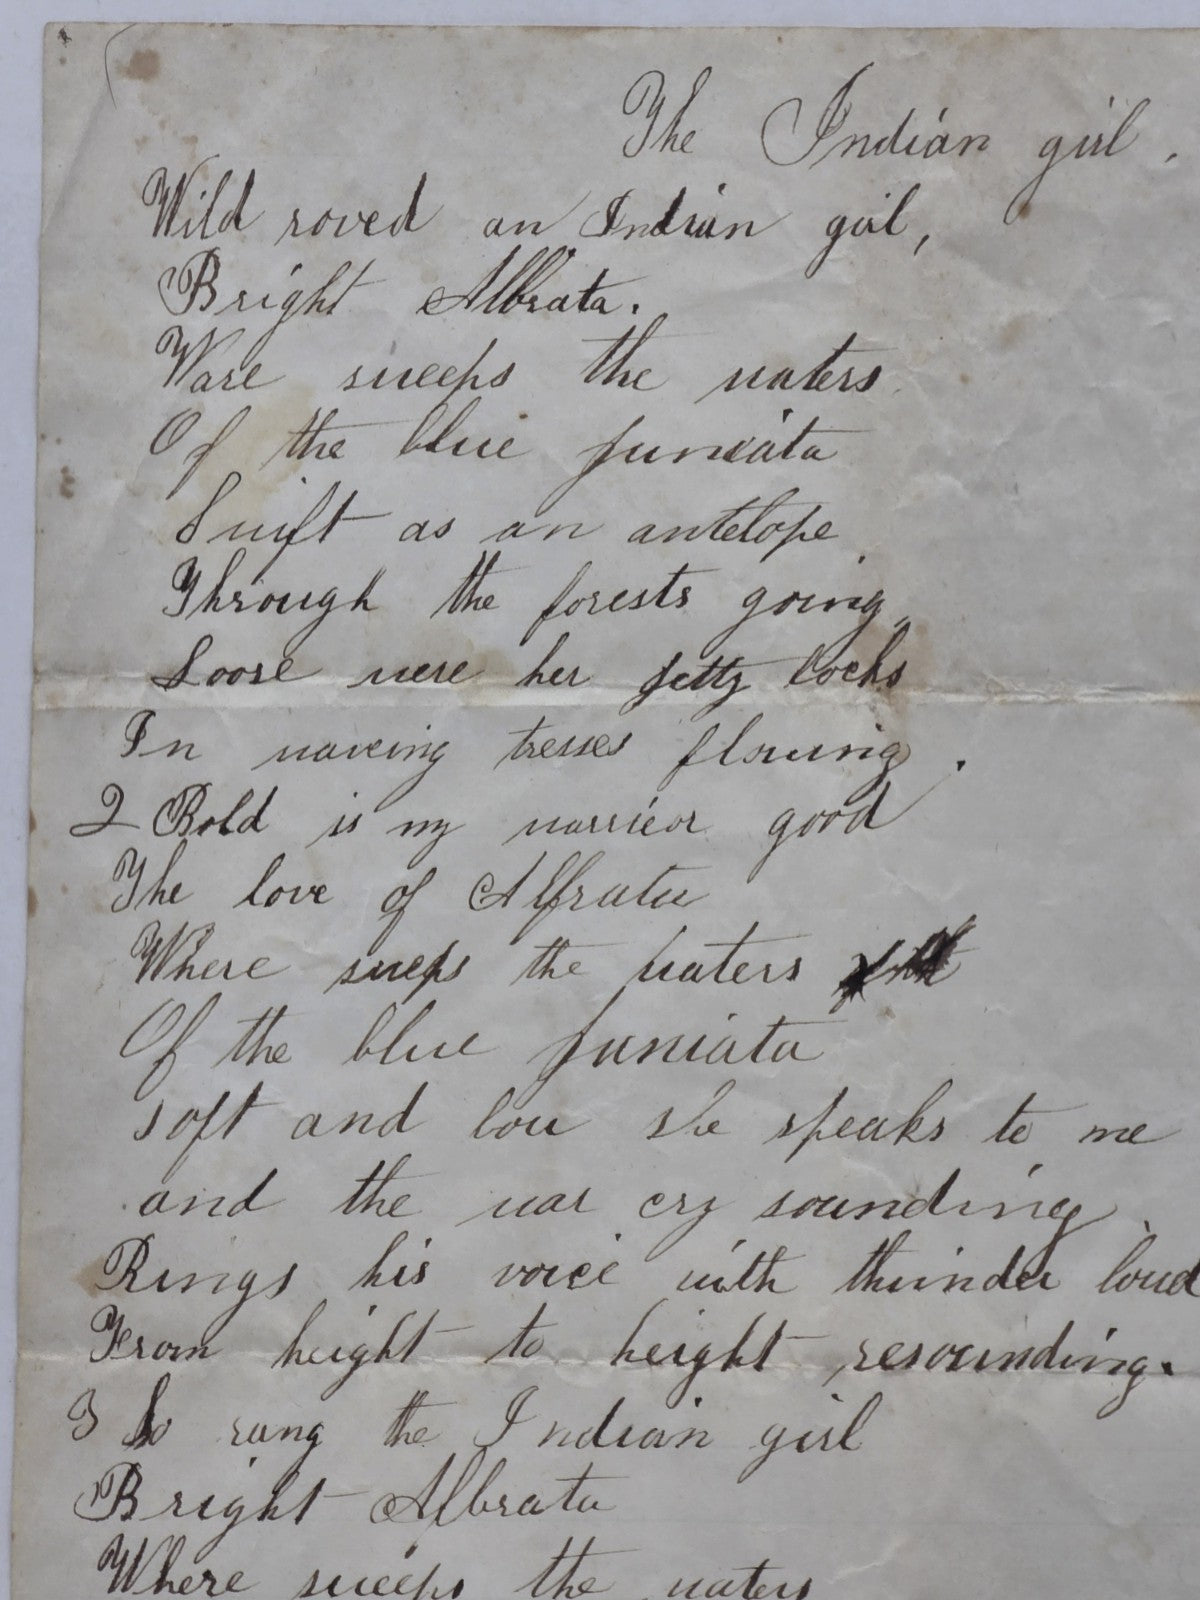 The Indian girl.
Wild roved an Indian girl,
Bright Albrata.
Ware sweeps the waters
Of the blue Juniata
Swift as an antelope
Through the forests going,
Loose were her jetty locks
In waveing tresses flowing.
2 Bold is my warrior good
The love of Alfrata
Where sweps the waters
Of the blue Juniata
soft and low she speaks to me
and the war cry sounding,
Rings his voice with thunder loud
From height to height resounding.
3 So sang the Indian girl
Bright Albrata
Where sweeps the waters